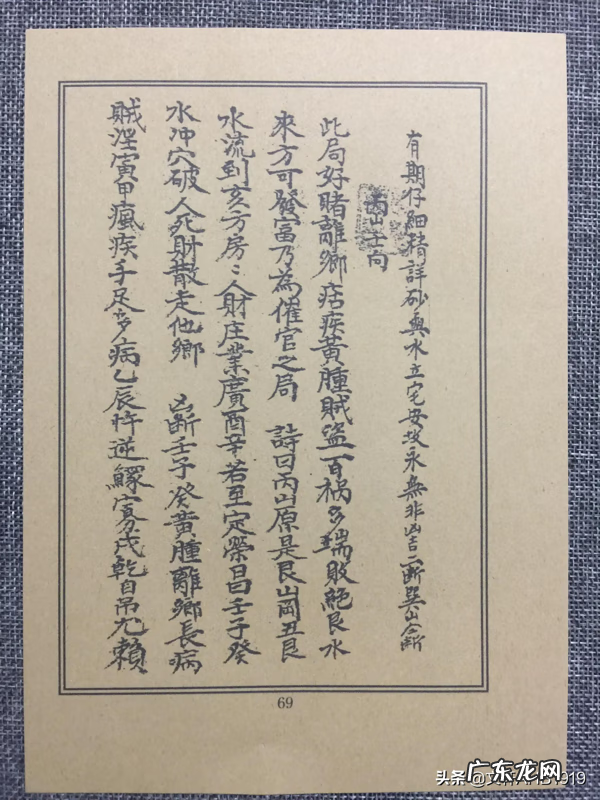 有期仔細精詳砂與水立宅安坟永無非凶吉二断巽山斷
丙山壬向
此局好賭離鄉痁疾黃腫賊盜百禍多端敗絕艮水
來方可發富乃為催官之局 詩曰丙山原是艮山岡丑艮
水流到亥方房〻人財庄業廣酉辛若至定榮昌壬子癸
水冲穴破人死財散走他鄉 凶断壬子癸黃腫離鄉長病
賊淫寅甲瘋疾手足多病乙辰忤逆鰥寡戌乾自吊尤賴
69
广东龙网